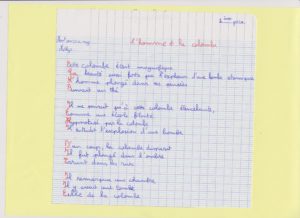 2ème prix
L'homme et la colombe
Cette colombe était magnifique
Sa beauté aussi forte que l'explosion d'une bombe atomique
L'homme plongé dans ses pensées
Buvant un thé
Il ne pensait qu'à cette colombe
Comme une école
Hypnotisé par la colombe
Il entendit l'explosion d'une bombe
D'un coup, la colombe disparut
Il fut plongé dans l'ombre
Errant dans les rues
Il remarqua une chambre
Il y avait une tombe
Celle de la colombe